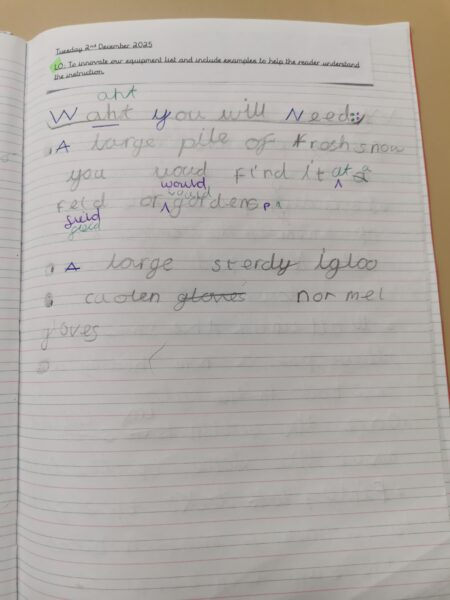 Tuesday 2nd December 2025
LO: To innovate our equipment list and include examples to help the reader understand
the instruction.
aht
W aht you will Need:
A large pile of frosh snow
you woud Find it at a
would
would
Feld or garden
field
field
A large sterdy igloo
gloves nor mel
gloves